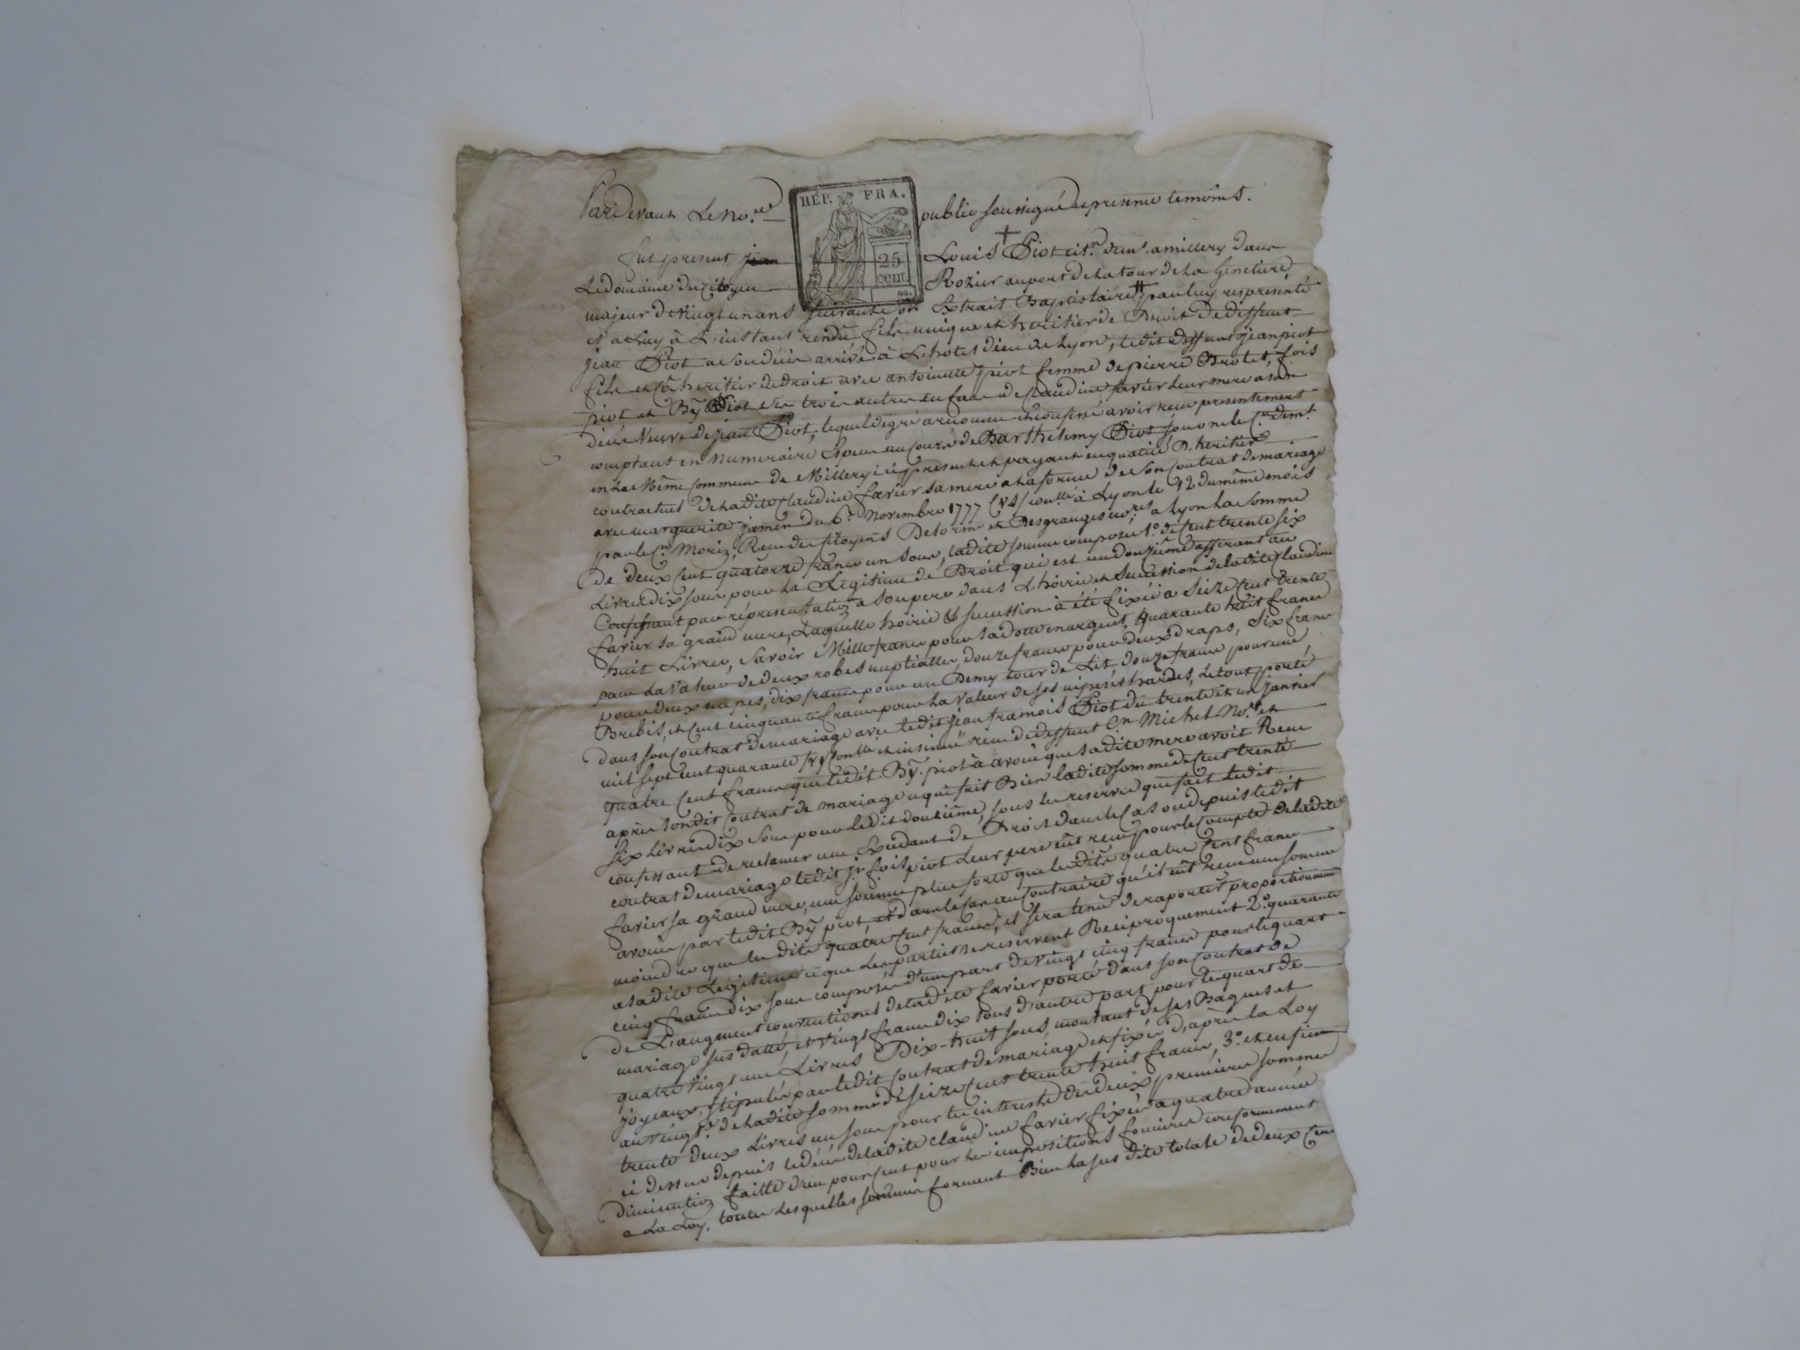 Pardevant Le No.re public soussigné en presence temoins.
RÉP. FRA.
25
cent
fut present jean Louis Piot cit.n dem.t a millery dans
Le domaine du Citoyen Rozier au port de la tour de la
majeur de Vingt un ans suivant son Extrait Baptistaire par luy representé
et a Luy à L'instant rendu fils unique et heritier de Droit de deffunt
jean Piot a son décès arrivé à L'hotel dieu de Lyon, ledit deffunt jean piot
fils et cohéritier de droit avec antoinette piot femme de pierre Brotet, fois
piot et By Piot ses trois autres enfans de Claudine favier leur mere a son
décès Veuve de jean Piot, lequel de gré a reconnu et confessé avoir recu presentement
comptant en Numeraire de Barthelemy Piot son oncle C.en dem.t
en la Même Commune de Millery ici présent et payant en qualité D'heritier
contractuel de ladite Claudine favier sa mere a la forme de son contrat de mariage
avec marguerite jamen du 6.e Novembre 1777 (VS) à Lyon le 12 du même mois
par le C.en Moriz, Recu des Citoyens Delorme et Desgranges no.res a Lyon La Somme
de deux Cent quatorze francs un Sous, ladite somme composée 1.o de Cent trente six
Livres dix sous pour La Légitime de Droit qui est un douzième afferant au
Confessant par representation a son pere dans L'hoirie et Succession de ladite Claudine
favier sa grand mere, Laquelle hoirie & succession a été fixée a Seize Cent trente
huit Livres, Savoir Mille francs pour sa dotte en argent, Quarante huit francs
pour La Valeur de deux robes nuptialles, douze francs pour deux draps, Six francs
pour deux napes, dix francs pour un Demy tour de Lit, douze francs pour une
Brebis, et Cent cinquante francs pour La Valeur de ses nipes et hardes, Le tout porté
dans son Contrat de mariage avec ledit jean francois Piot du trente et un janvier
mil sept cent quarante et insinué recu de deffunt C.n Michel No.re et
quatre Cent francs que ledit By. piot a avoué que sadite mere avoit Recu
après sondit Contrat de mariage ce qui fait Bien ladite somme de Cent trente
six Livres dix Sous pour Ledit douzième, sous la reserve que fait ledit
confessant de reclamer un Excedant de Droit dans le Cas ou depuis ledit
contrat de mariage ledit j.n fois piot Leur pere eût recu pour le Compte de ladite
favier sa grand mere, une somme plus forte que lesdits quatre Cent francs
avoués par ledit By piot, et dans le Cas au Contraire qu'il eût Recu une somme
moindre que lesdits quatre Cent francs, il sera tenu de raporter proportionnement
a sadite Légitime ce que Les parties se reservent Reciproquement 2.o quarante
cinq francs dix sous composés d'une part de Vingt cinq francs pour le quart
de L'augment conventionel de ladite favier porté dans son Contrat de
mariage sus datté, et Vingt francs dix sous d'autre part pour le quart de
quatre Vingt un Livres Dix-huit sous, montant de ses Bagues et
joyeaux, stipulés par ledit Contrat de mariage et fixés d'après la Loy
au Vingt.e de ladite Somme de Seize Cent trente huit francs, 3.o et enfin
trente deux Livres un sous pour les interets des deux premieres sommes
ci dessus depuis le décès de ladite Claudine favier fixés a quatre années
diminution faitte d'un pour cent pour les impositions foncieres conformement
a La Loy, toutes Lesquelles sommes forment Bien La sus dite totale de deux Cent